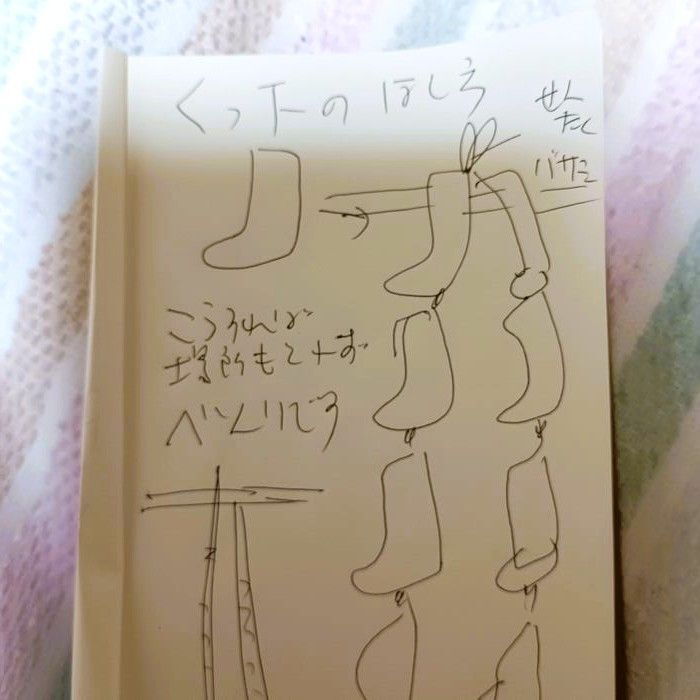 くつ下のほし方
せんたく
バサミ
こうすれば
場所もとらず
べんりです